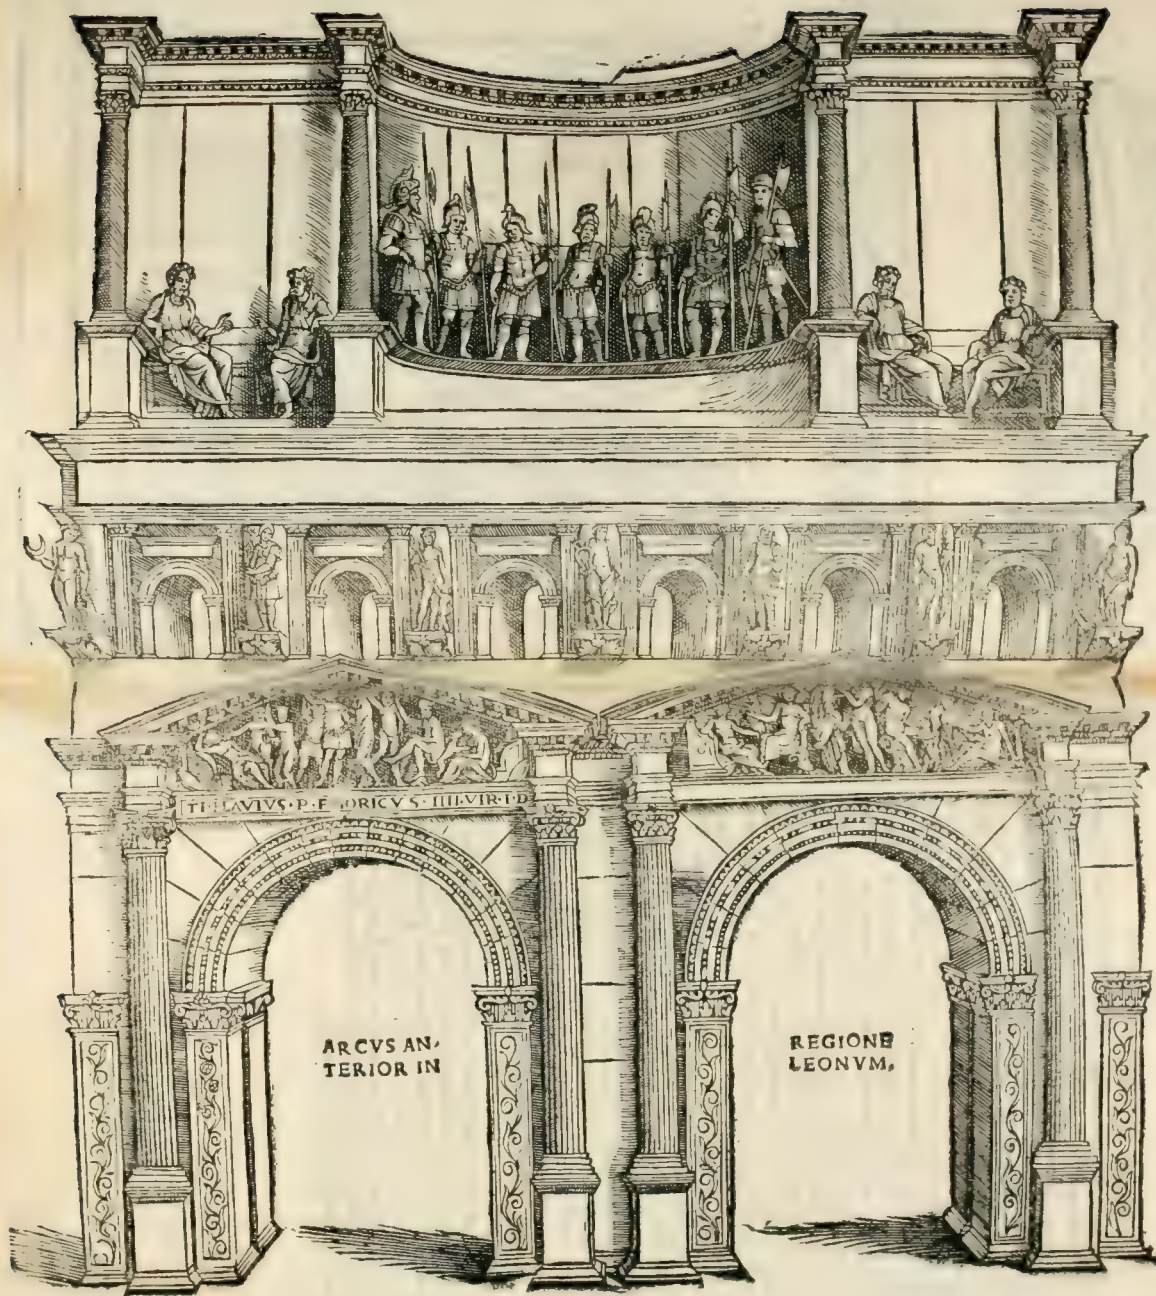 TI·FLAVIVS·P·F ORICVS·IIII·VIR·I·D
ARCVS AN-
TERIOR IN
REGIONE
LEONVM,